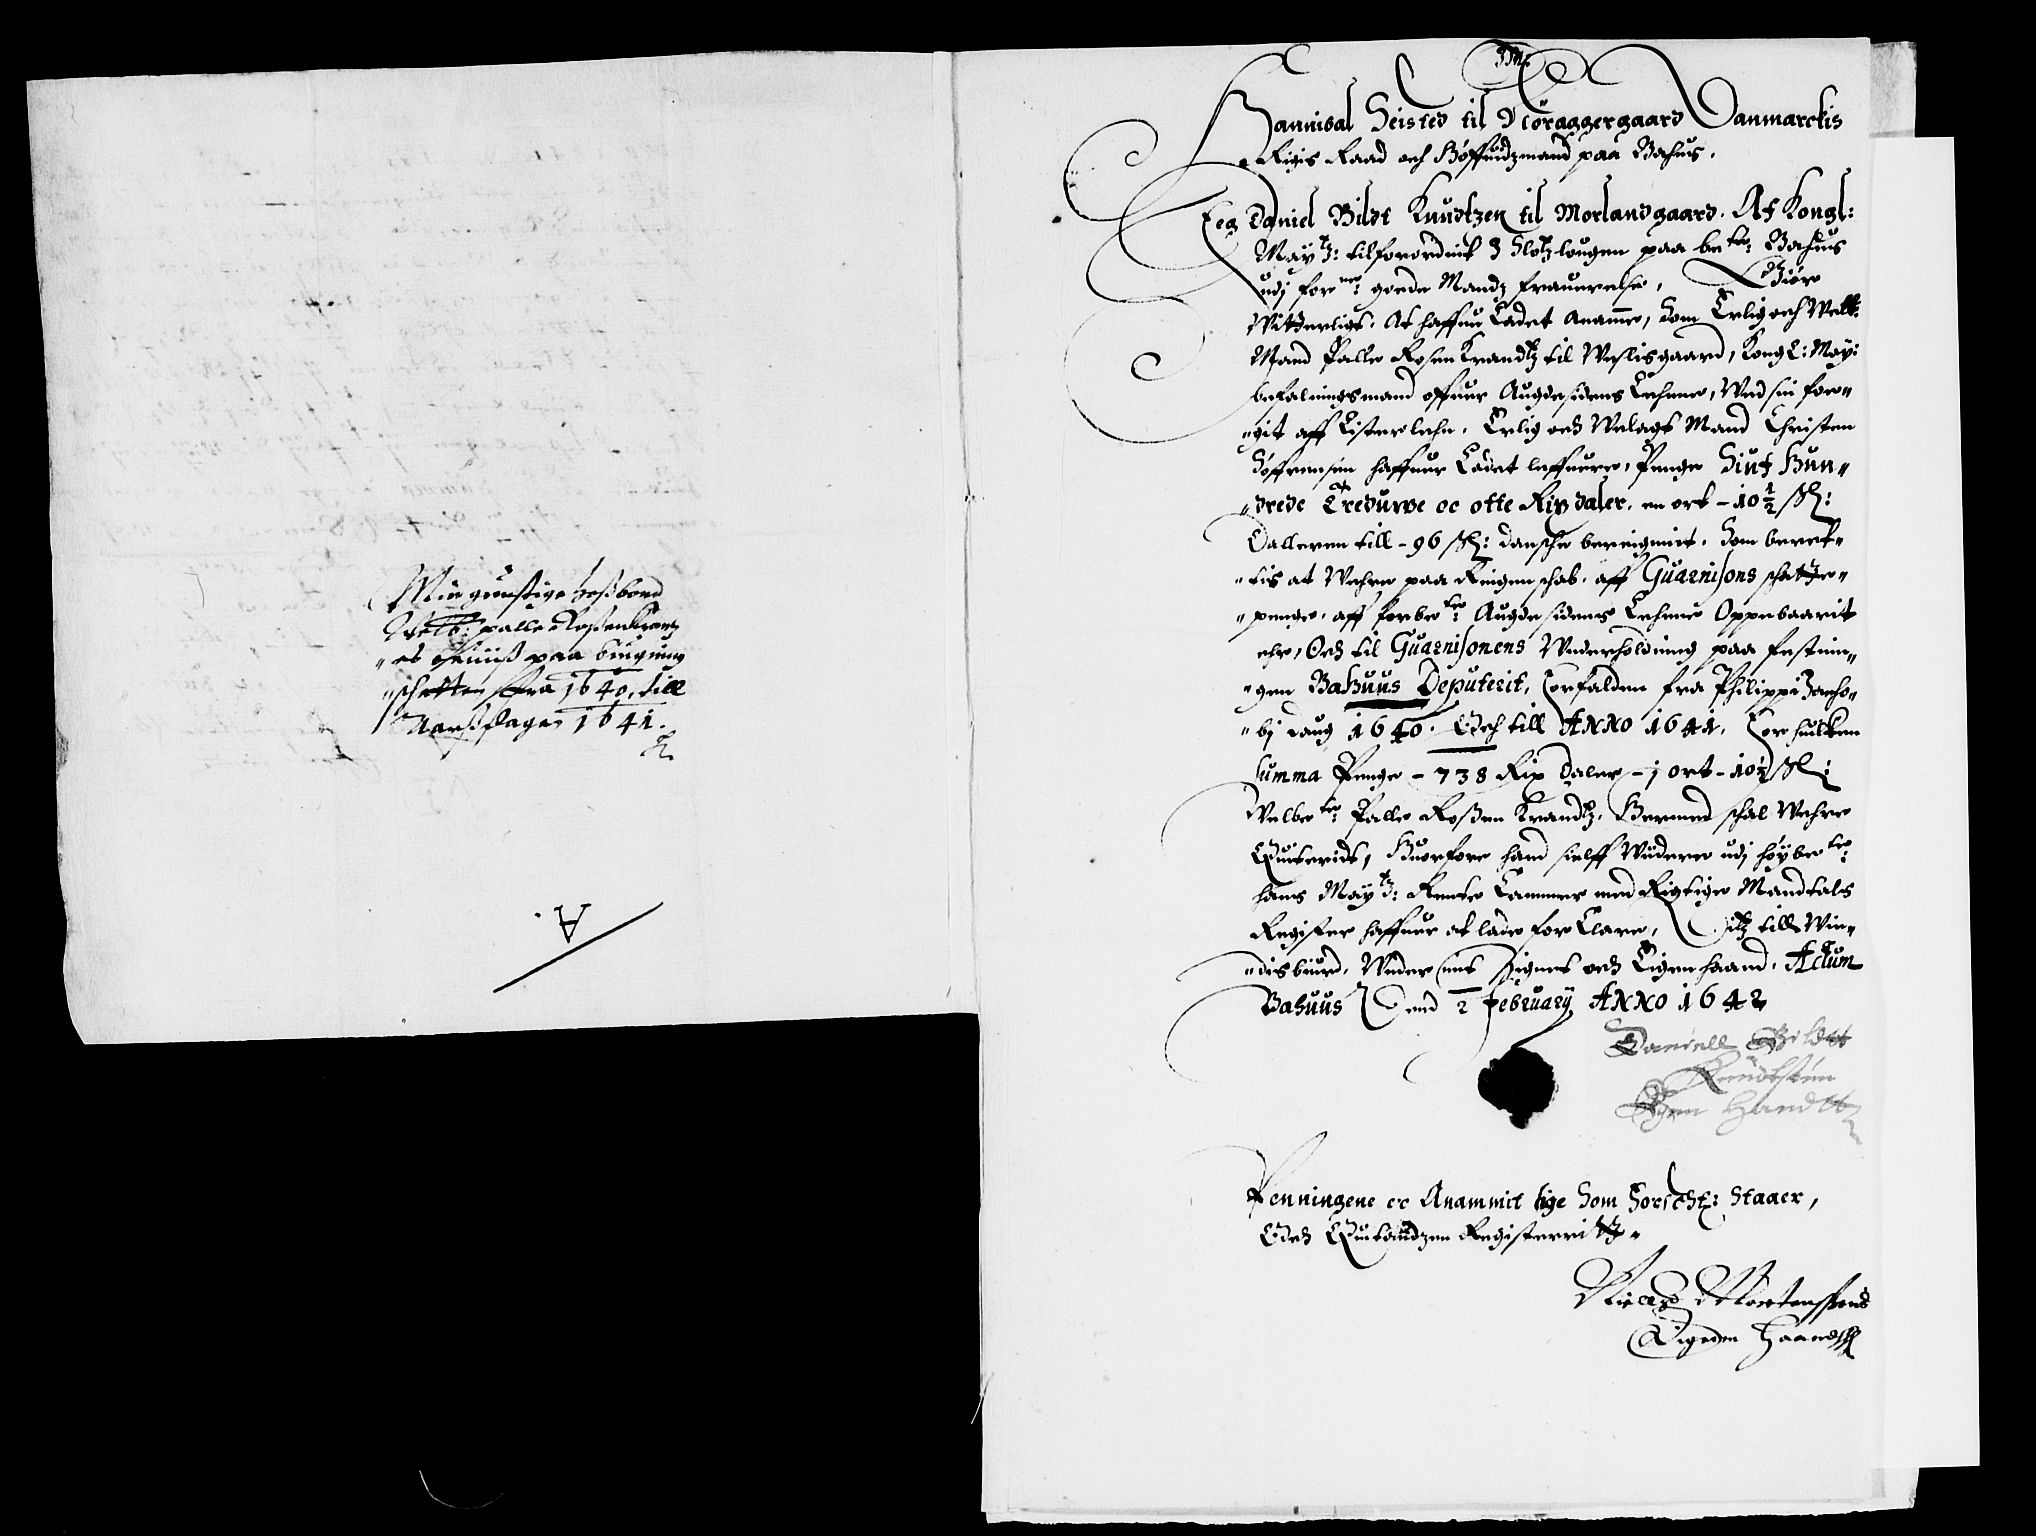 Min gunstige hosbond
Welb: palle Rosenkrantz
"et beuiiss paa bugning
"schatten fra 1640, till
Aarssdagen 1641.
A.
Hannibal Seisted til Nöraggergaard Danmarckis
Rigis Raad och Höffuidzmand paa Bahus.
Jeg Daniel Bildt Knudtzen til Morlandgaard. Af Kongl:
Maytz: tilforordnit I Slotzlougen paa bete: Bahuus
udj forne: goede Mandz frauerelse, Giör
Witterligt. At haffue Ladet Anamme, Som Erlig och Welb:
Mand Palle Rosen Krandtz til Weslisgaard, Kongl: May:
befalningsmand offuer Augdesidens Lehnne, Wed sin fore"
"git aff Listerlehn. Erlig och Welagt Mand Christen
Söffrensen haffuer Ladet leffuere, Penge Siuf Hun"
"drede Tredurve oc otte Rixdaler. en ort - 10 1/2 sk:
Dalleren till - 96 sk: danske bereignit. Som beret"
"tis at Wehre paa Reigenschab. aff Guarnisons schatte"
"penge. aff forbete: Augdesidens Lehnne Oppebaarit
ehr, Och til Guarnisonens Wnderholdning paa festnin"
"gen Bahuus Deputerit, forfalden fra Philippi Jacho"
"bj daug 1640. Och till ANNO 1641. for huilken
summa Penge - 738 Rix daler - 1 ort - 10 1/2 sk:
Welbete: Palle Rosen Krandtz. Hermed schal Wehre
Quiterids, Huorfore hand sielff Widere udj höybete:
hans Maytz: Rente Cammer med Rigtige Mandtals
Register haffuer at lade for Clare, Ditz till Win"
"disbiurd. Wnder mit Signet och Eigen haand. Actum
Bahuus Dend 2 February ANNO 1642
Daniell Bildtt
Knudtsten
Egen Handtt
Penningene er Anammit lige Som Forschr: Staaer,
Och Quitandzen Registerritt.
Mortenssen
Eigeden Haand